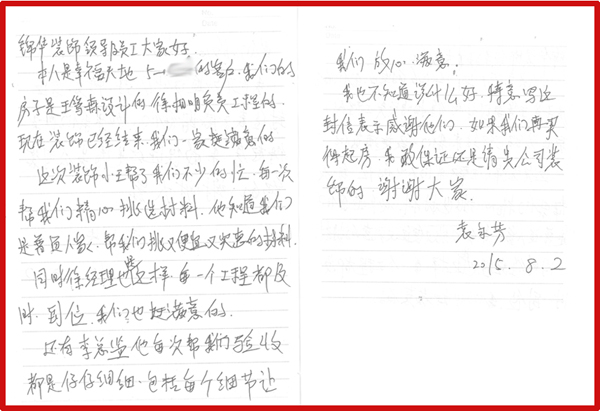 锦华装饰领导员工大家好.
本人是幸福天地 5— 的客户.我们的
房子是王雪森设计的徐相明负责工程的.
现在装饰已经结束.我们一家挺满意的
这次装饰小王帮了我们不少的忙.每一次
帮我们精心挑选材料.他知道我们
是普通人家.帮我们挑又便宜又实惠的材料.
同时徐经理也这样.每一个工程都及
时.到位.我们也挺满意的.
还有李总监他每次帮我们验收
都是仔仔细细.包括每个细节让
我们放心.满意.
我也不知道说什么好.特意写这
封信表示感谢他们.如果我们再买
得起房.我敢保证还是请贵公司装
饰的.谢谢大家.
袁 芳
2015.8.2